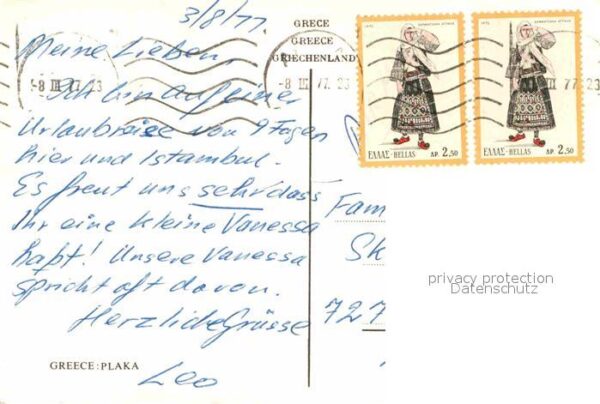 3/8/77.
GRECE
GREECE
GRIECHENLAND
Meine Lieben,
-8 III 77. 23
-8 III 77. 23
III 77. 23
Ich bin auf einer
Urlaubreise von 9 Tagen
hier und Istambul.
Es freut uns sehr dass
Ihr eine kleine Vanessa
habt! Unsere Vanessa
spricht oft davon.
Herzliche Grüsse
Leo
GREECE: PLAKA
1972
ΕΛΛΑΣ-HELLAS ΔΡ. 2,50
1972
ΕΛΛΑΣ-HELLAS ΔΡ. 2,50
Fam
Sk
727
privacy protection
Datenschutz